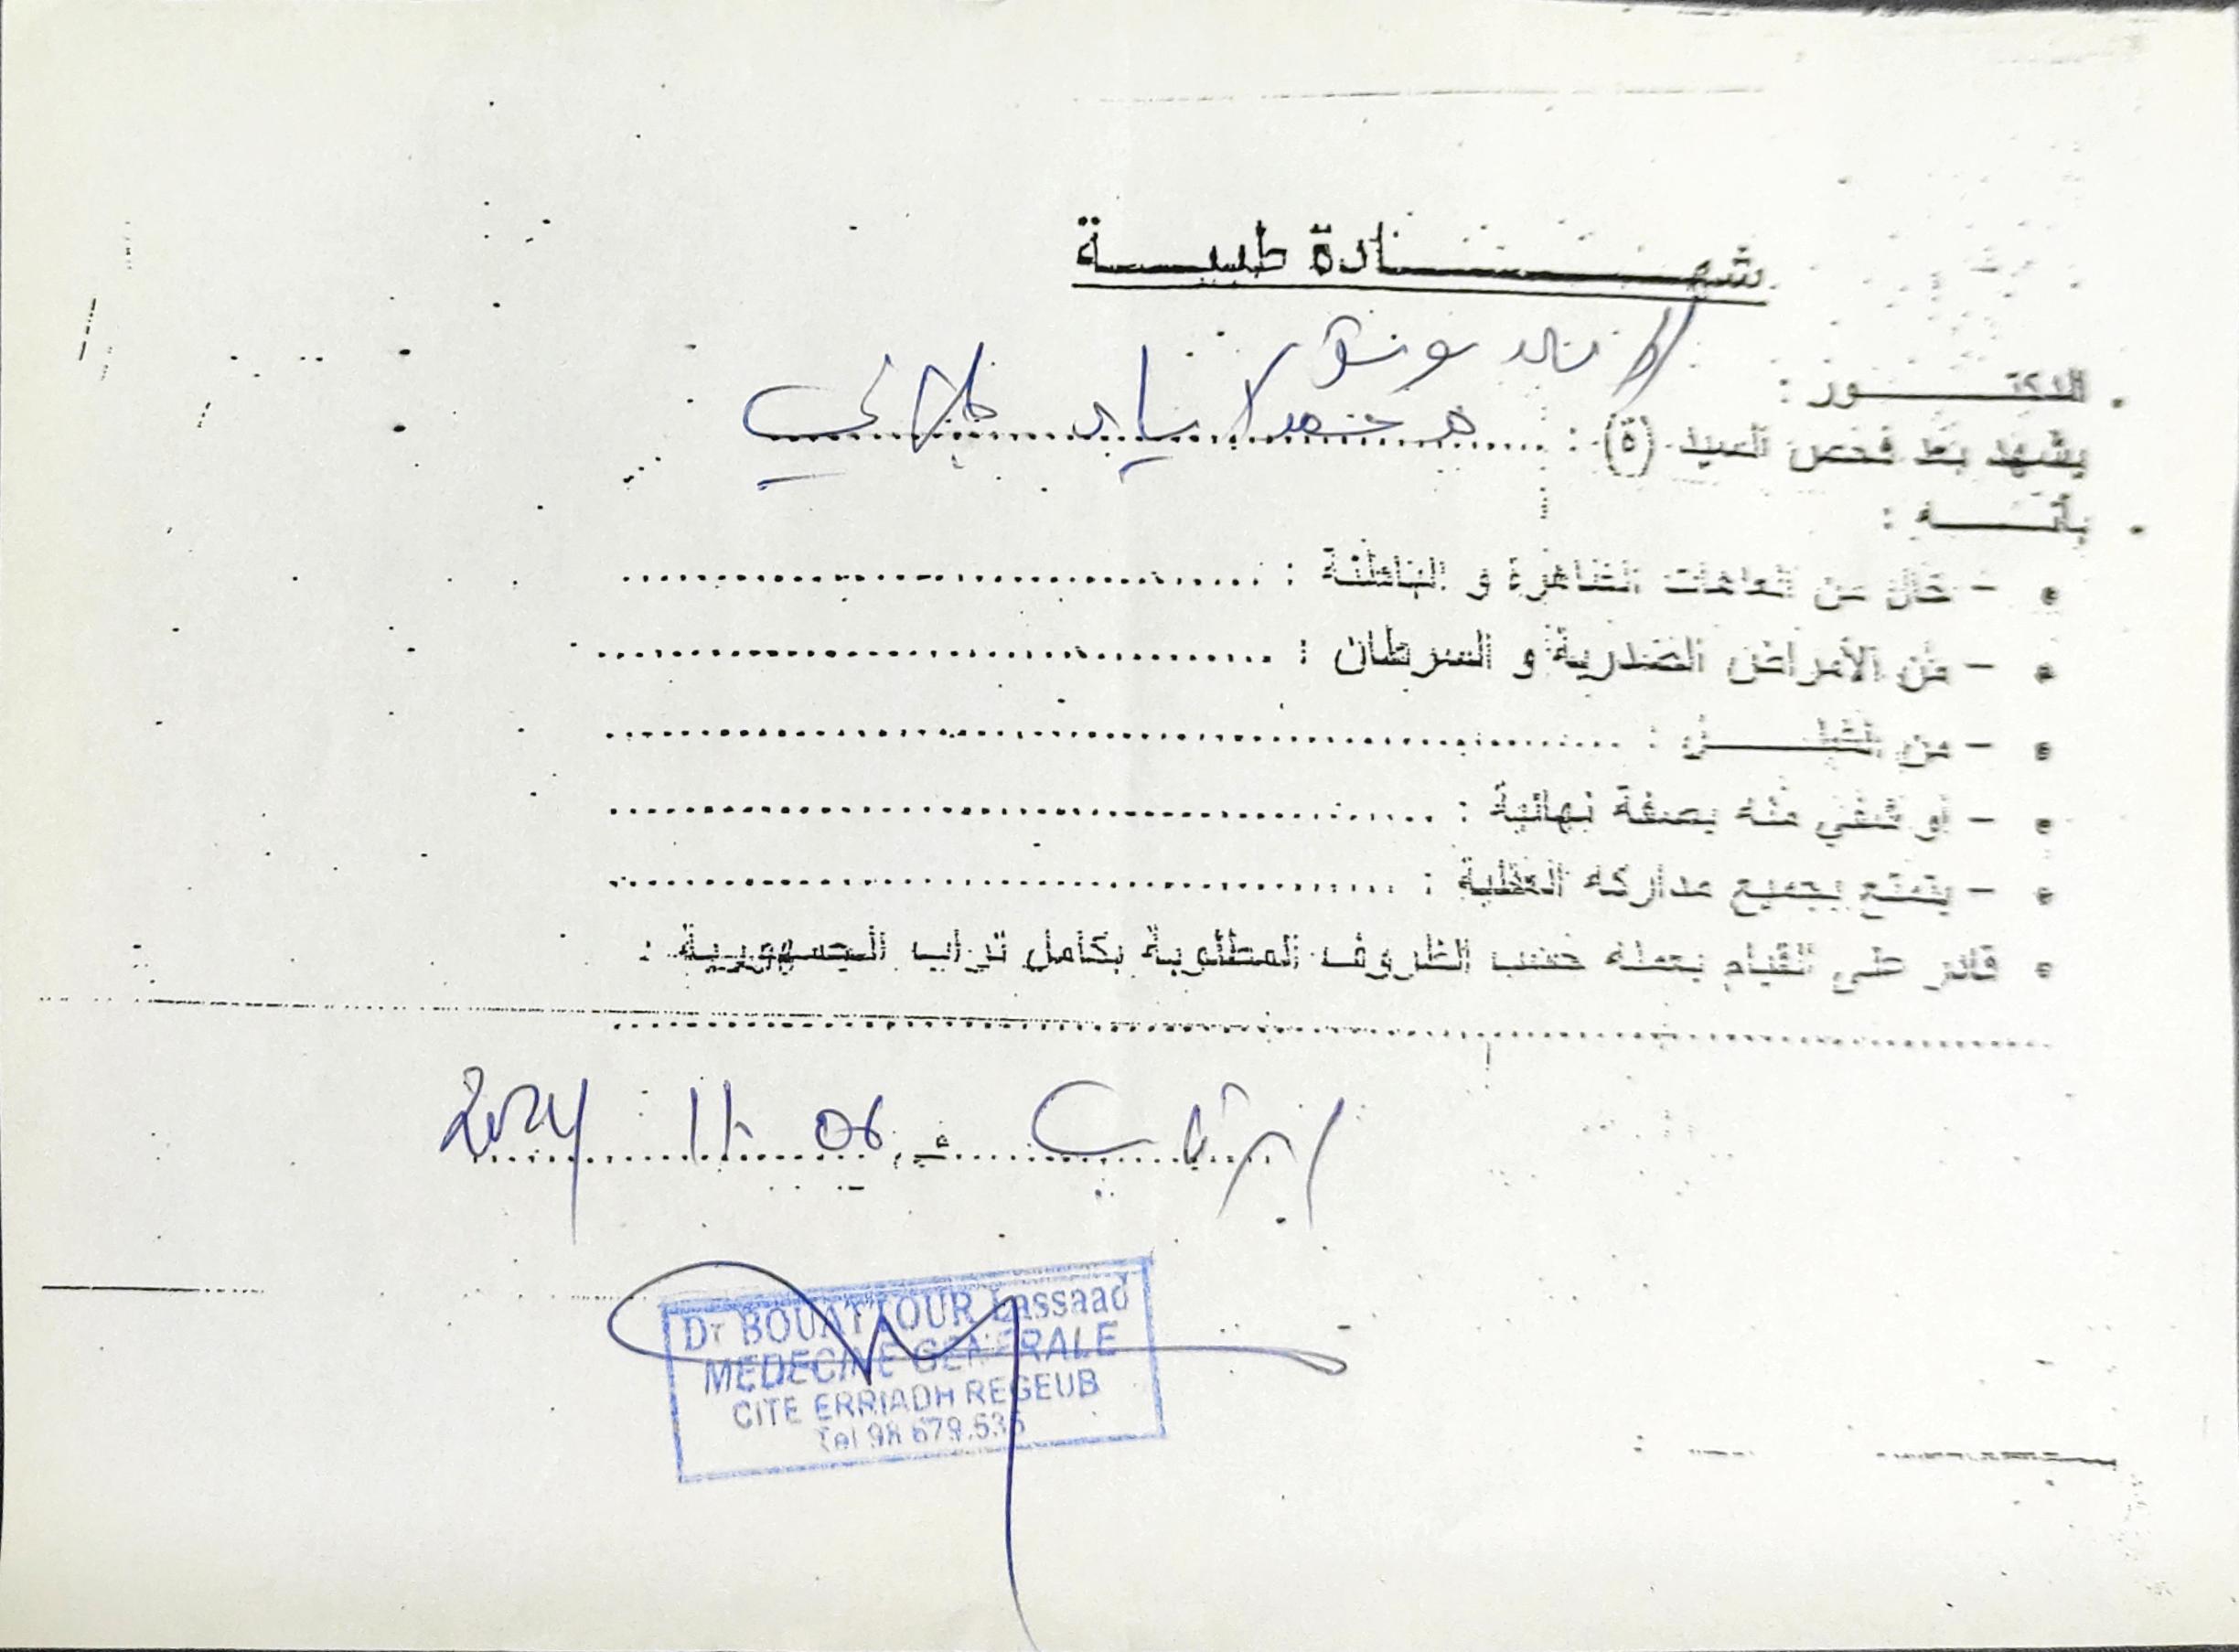 شهـــــادة طبيـــة
الدكتـــــور :
يشهد بعد فحص السيد (ة) : محمد
بأنـــــه :
- خال من العاهات الظاهرة و الباطنة :
- من الأمراض الصدرية و السرطان :
- من الشلـــــل :
- أو شفي منه بصفة نهائية :
- يتمتع بجميع مداركه العقلية :
قادر على القيام بعمله حسب الظروف المطلوبة بكامل تراب الجمهورية :
الرقاب في 06 11 2024
Dr BOUATTOUR Lassaad
MEDECINE GENERALE
CITE ERRIADH REGEUB
Tel 98 679.535